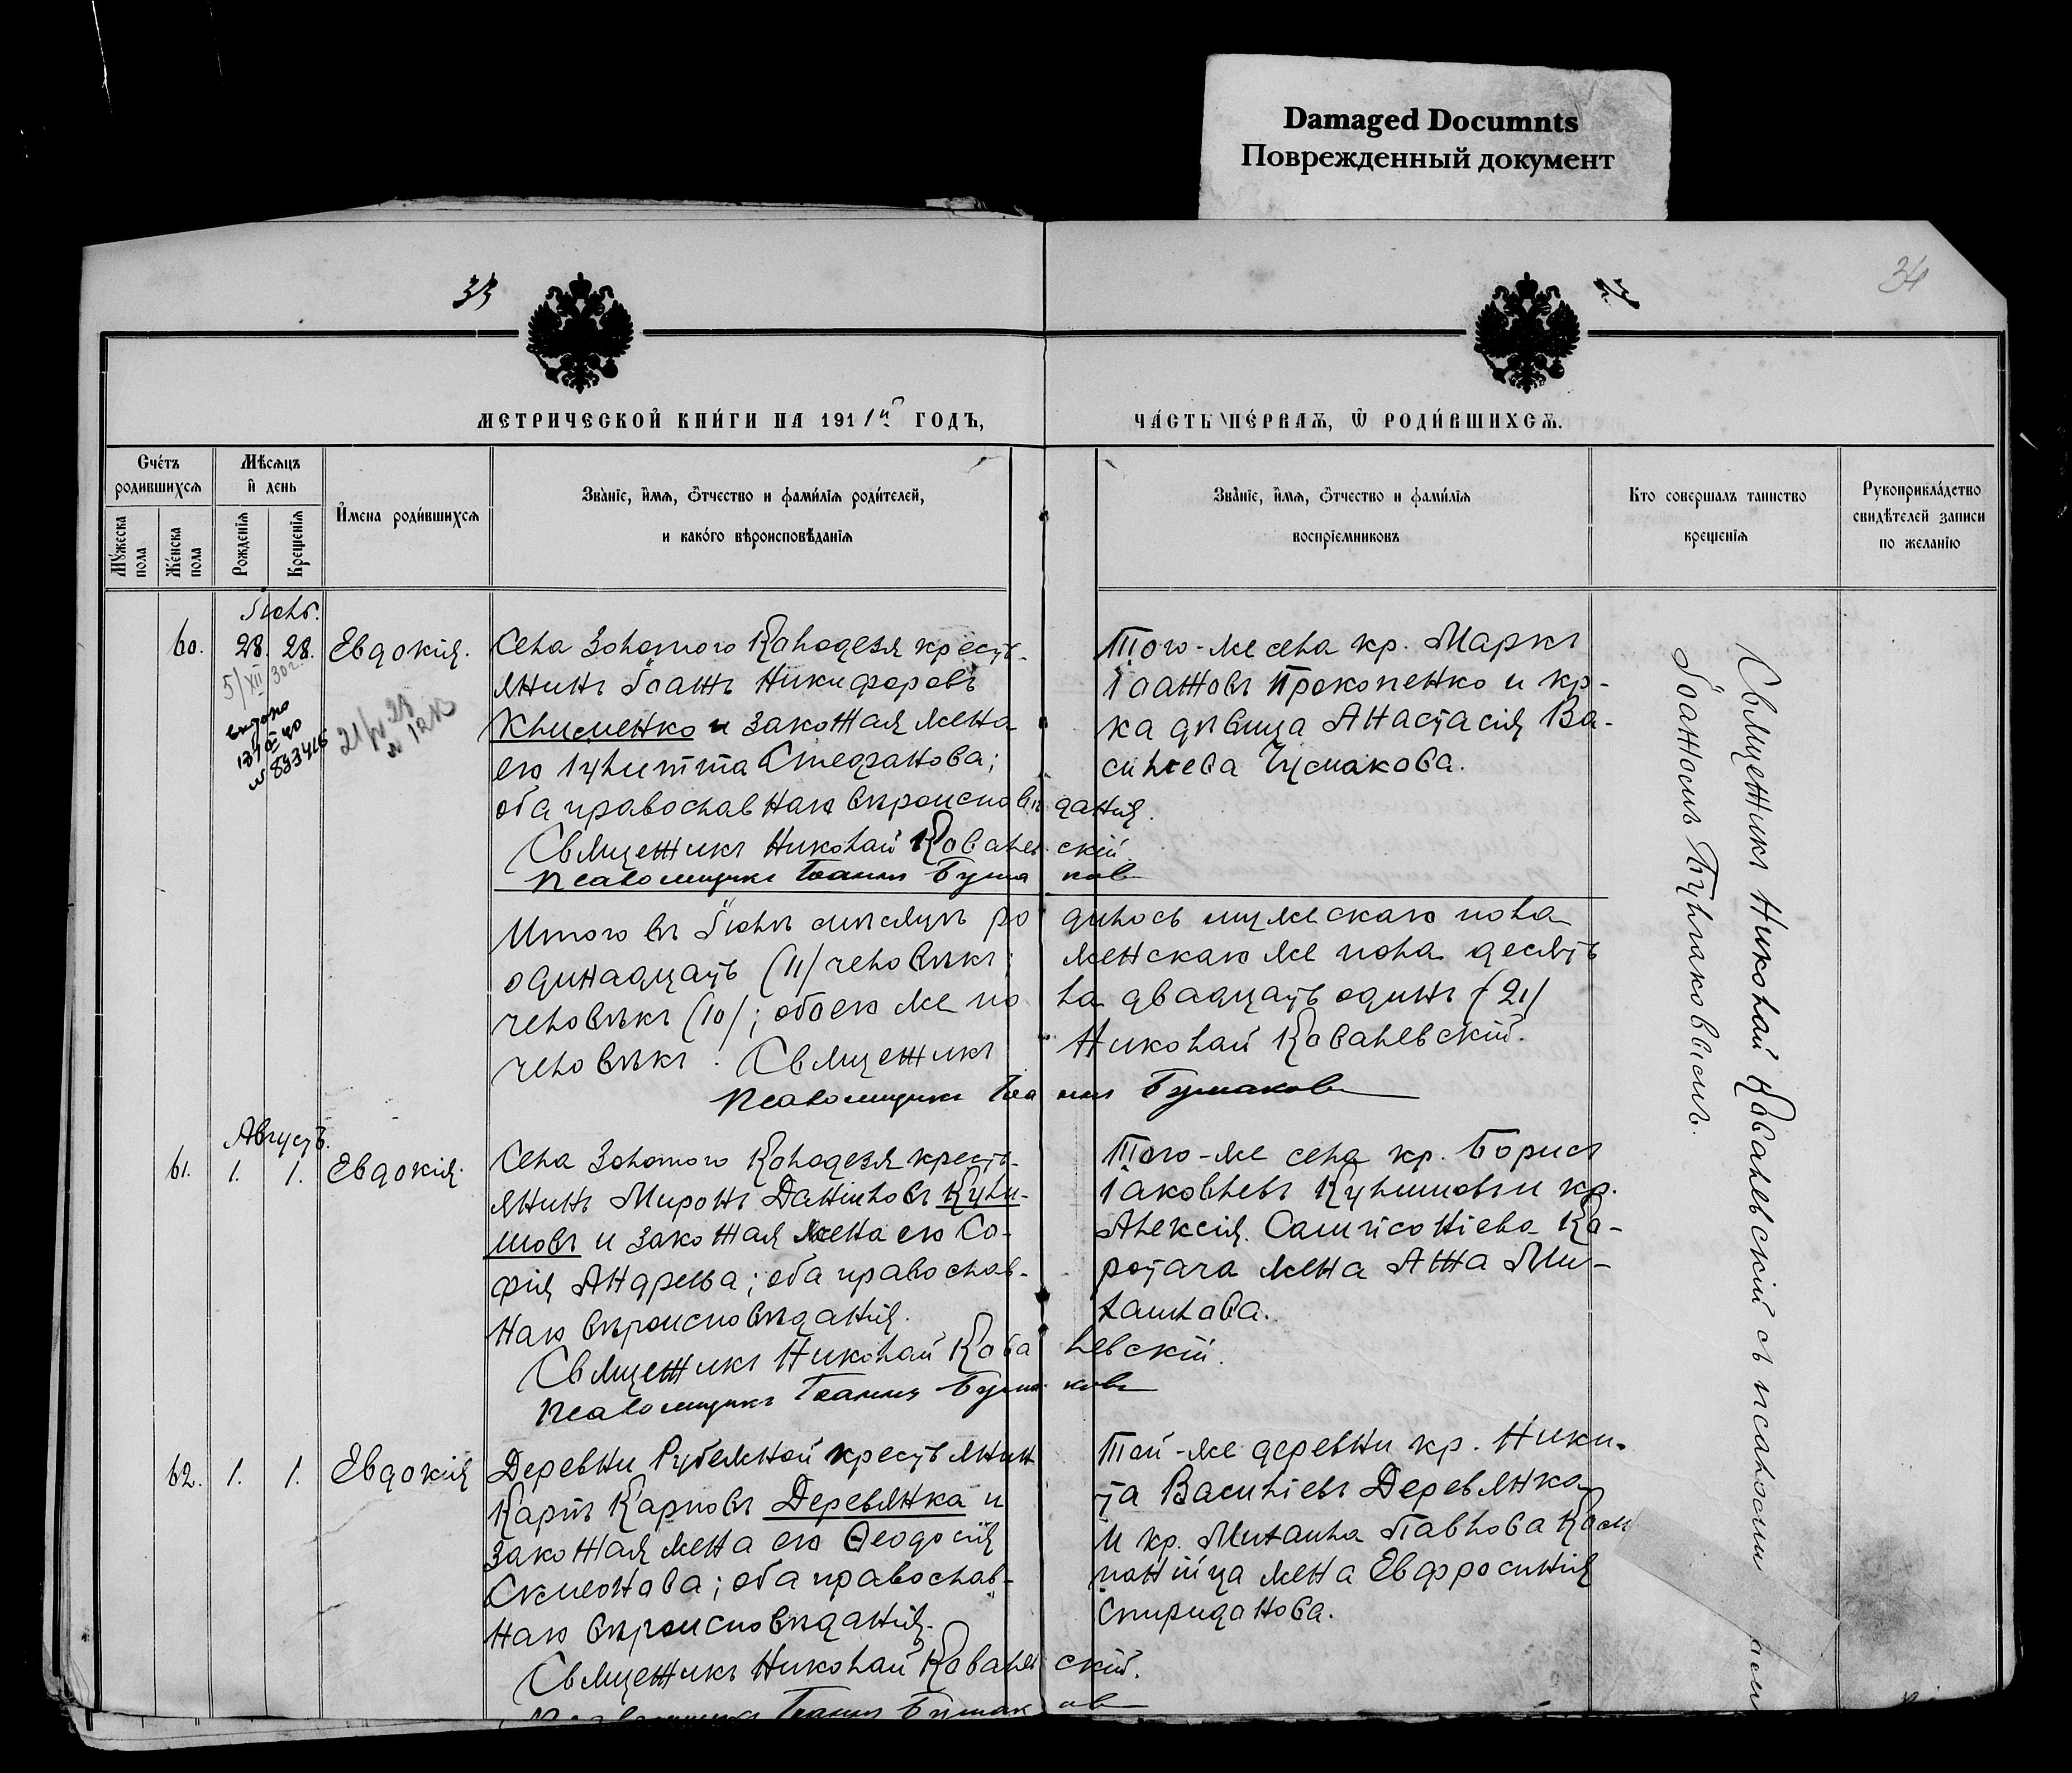 Damaged Documnts
Поврежденный документ
33
34
МЕТРИЧЕСКОЙ КНИГИ НА 1911й ГОДЪ,
ЧАСТЬ ПЕРВАЯ, Ѡ РОДИВШИХСЯ.
Счетъ родившихся
Мужеска пола
Женска пола
Мѣсяцъ и день
Рожденія
Крещенія
Имена родившихся
Званіе, имя, отчество и фамилія родителей,
и какого вѣроисповѣданія
Званіе, имя, отчество и фамилія
воспріемниковъ
Кто совершалъ таинство
крещенія
Рукоприкладство
свидѣтелей записи
по желанію
Іюль.
60. 28. 28. Евдокія.
5/XII 30г.
выдано
№ 833416
Села Золотого Колодезя кресть-
янинъ Іоаннъ Никифоровъ
Клименко и законная жена
его Іулитта Стефанова;
оба православнаго вѣроисповѣданія.
Священникъ Николай Ковалевскій
Псаломщикъ Іоаннъ Булшаковъ
Того-же села кр. Маркъ
Іоанновъ Прокопенко и кр-
ка дѣвица Анастасія Ва-
сильева Чумакова.
Итого въ Іюлѣ мѣсяцѣ родилось мужескаго пола
одинадцать (11) человѣкъ; женскаго же пола десять
человѣкъ (10); обоего же пола двадцать одинъ (21)
человѣкъ. Священникъ Николай Ковалевскій.
Псаломщикъ Іоаннъ Булшаковъ
Августъ.
61. 1. 1. Евдокія.
Села Золотого Колодезя кресть-
янинъ Миронъ Даніиловъ Кули-
шовъ и законная жена его Со-
фія Андреева; оба православ-
наго вѣроисповѣданія.
Священникъ Николай Ковалевскій.
Псаломщикъ Іоаннъ Булшаковъ
Того-же села кр. Борисъ
Іаковлевъ Кулишовъ и кр.
Алексія Сампсоніева Ко-
ротача жена Анна Ми-
хаилова.
62. 1. 1. Евдокія
Деревни Рубежной крестьянин
Карпъ Карповъ Деревянка и
законная жена его Ѳеодосія
Симеонова; оба православ-
наго вѣроисповѣданія.
Священникъ Николай Ковалевскій.
Псаломщикъ Іоаннъ Булшаковъ
Той-же деревни кр. Ники-
та Васильевъ Деревянка
и кр. Михаила Павлова Ком-
панійца жена Евфросинія
Спиридонова.
Священникъ Николай Ковалевскій съ псаломщикомъ
Іоанномъ Булшаковымъ.